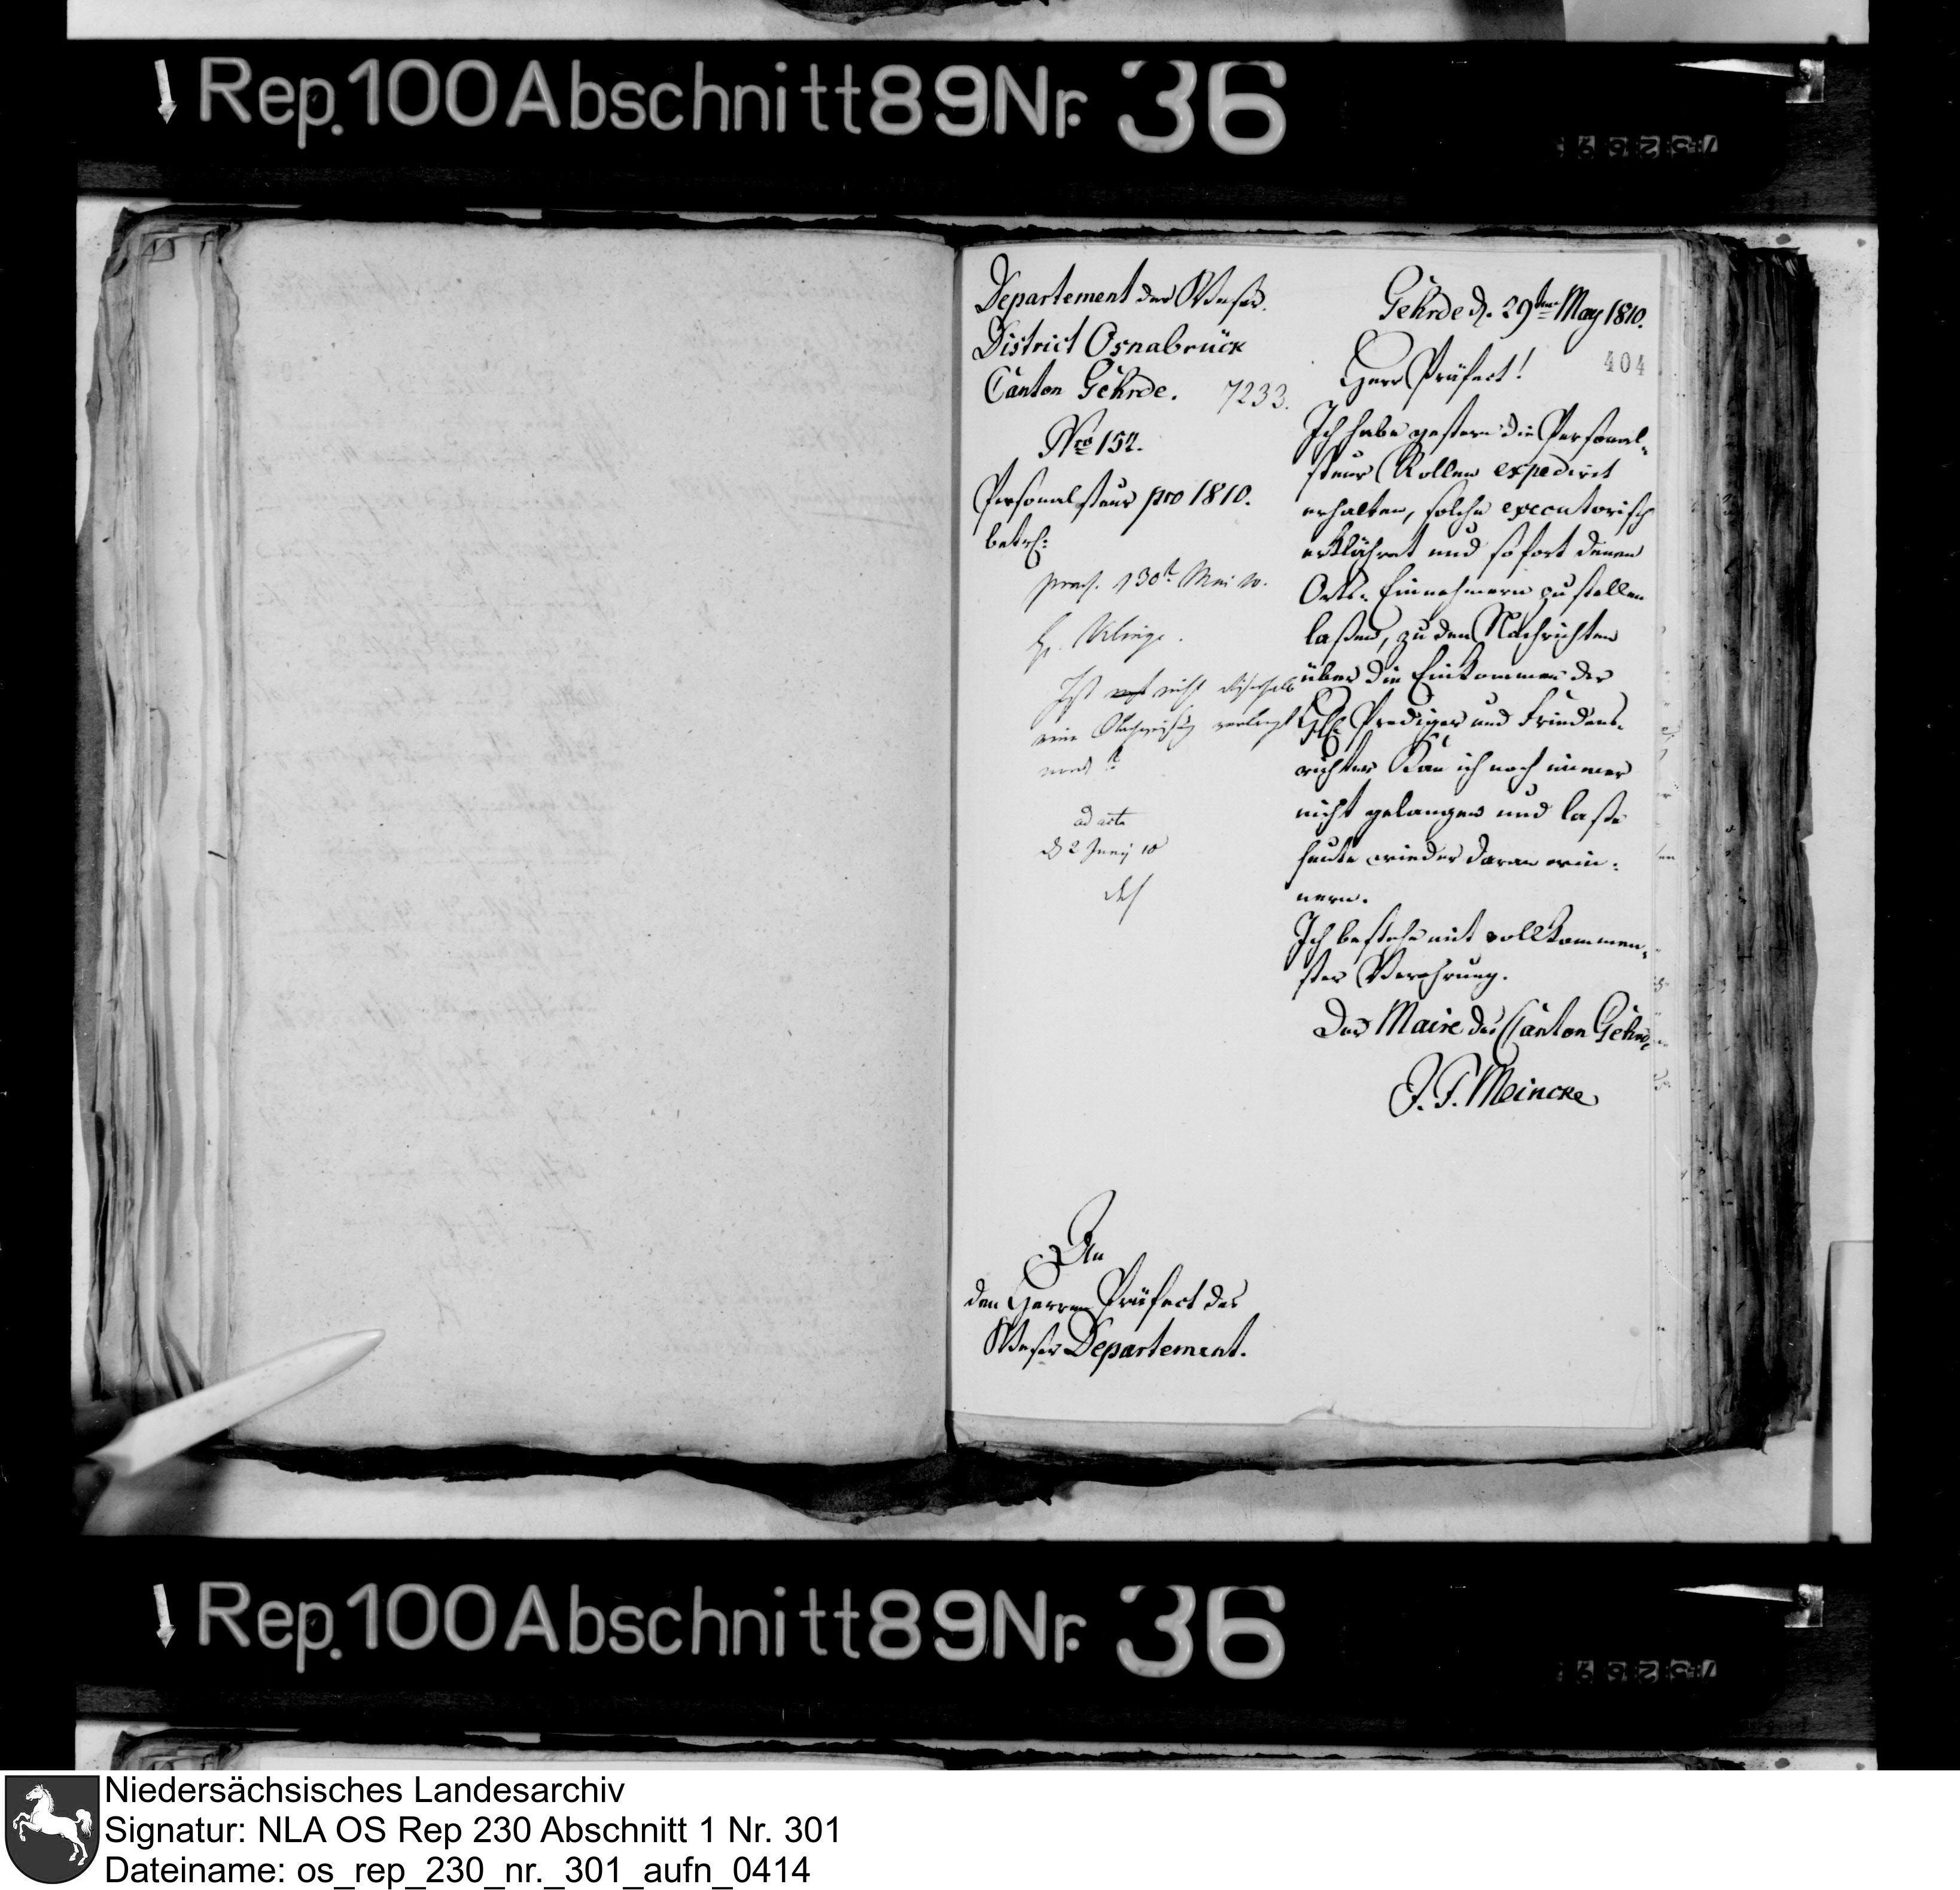 Rep. 100 Abschnitt 89 Nr. 36
Departement der Weser.
District Osnabrück
Canton Gehrde. 7233.
Nro 152.
Personalsteur pro 1810.
betr:
praes. d 30t Mai 10.
H. Klinge.
Ist nicht deshalb
eine Nachweisung verlangt
word
ad acta
d 2 Juny 10
Gehrde d. 29ten May 1810.
404
Herr Präfect!
Ich habe gestern die Personal-
steur Rollen expedirt
erhalten, solche executorisch
erklähret und sofort denen
Orts-Einnehmern zustellen
laßen, zu den Nachrichten
über die Einkommen der
Prediger und Friedens-
richter kan ich noch immer
nicht gelangen und laße
heute wieder daran erin-
nern.
Ich bestehe mit vollkommen-
ster Verehrung.
Der Maire des Canton Gehrde
J. F. Meincke
An
den Herren Präfect des
Weser Departement.
Rep. 100 Abschnitt 89 Nr. 36
Niedersächsisches Landesarchiv
Signatur: NLA OS Rep 230 Abschnitt 1 Nr. 301
Dateiname: os_rep_230_nr._301_aufn_0414